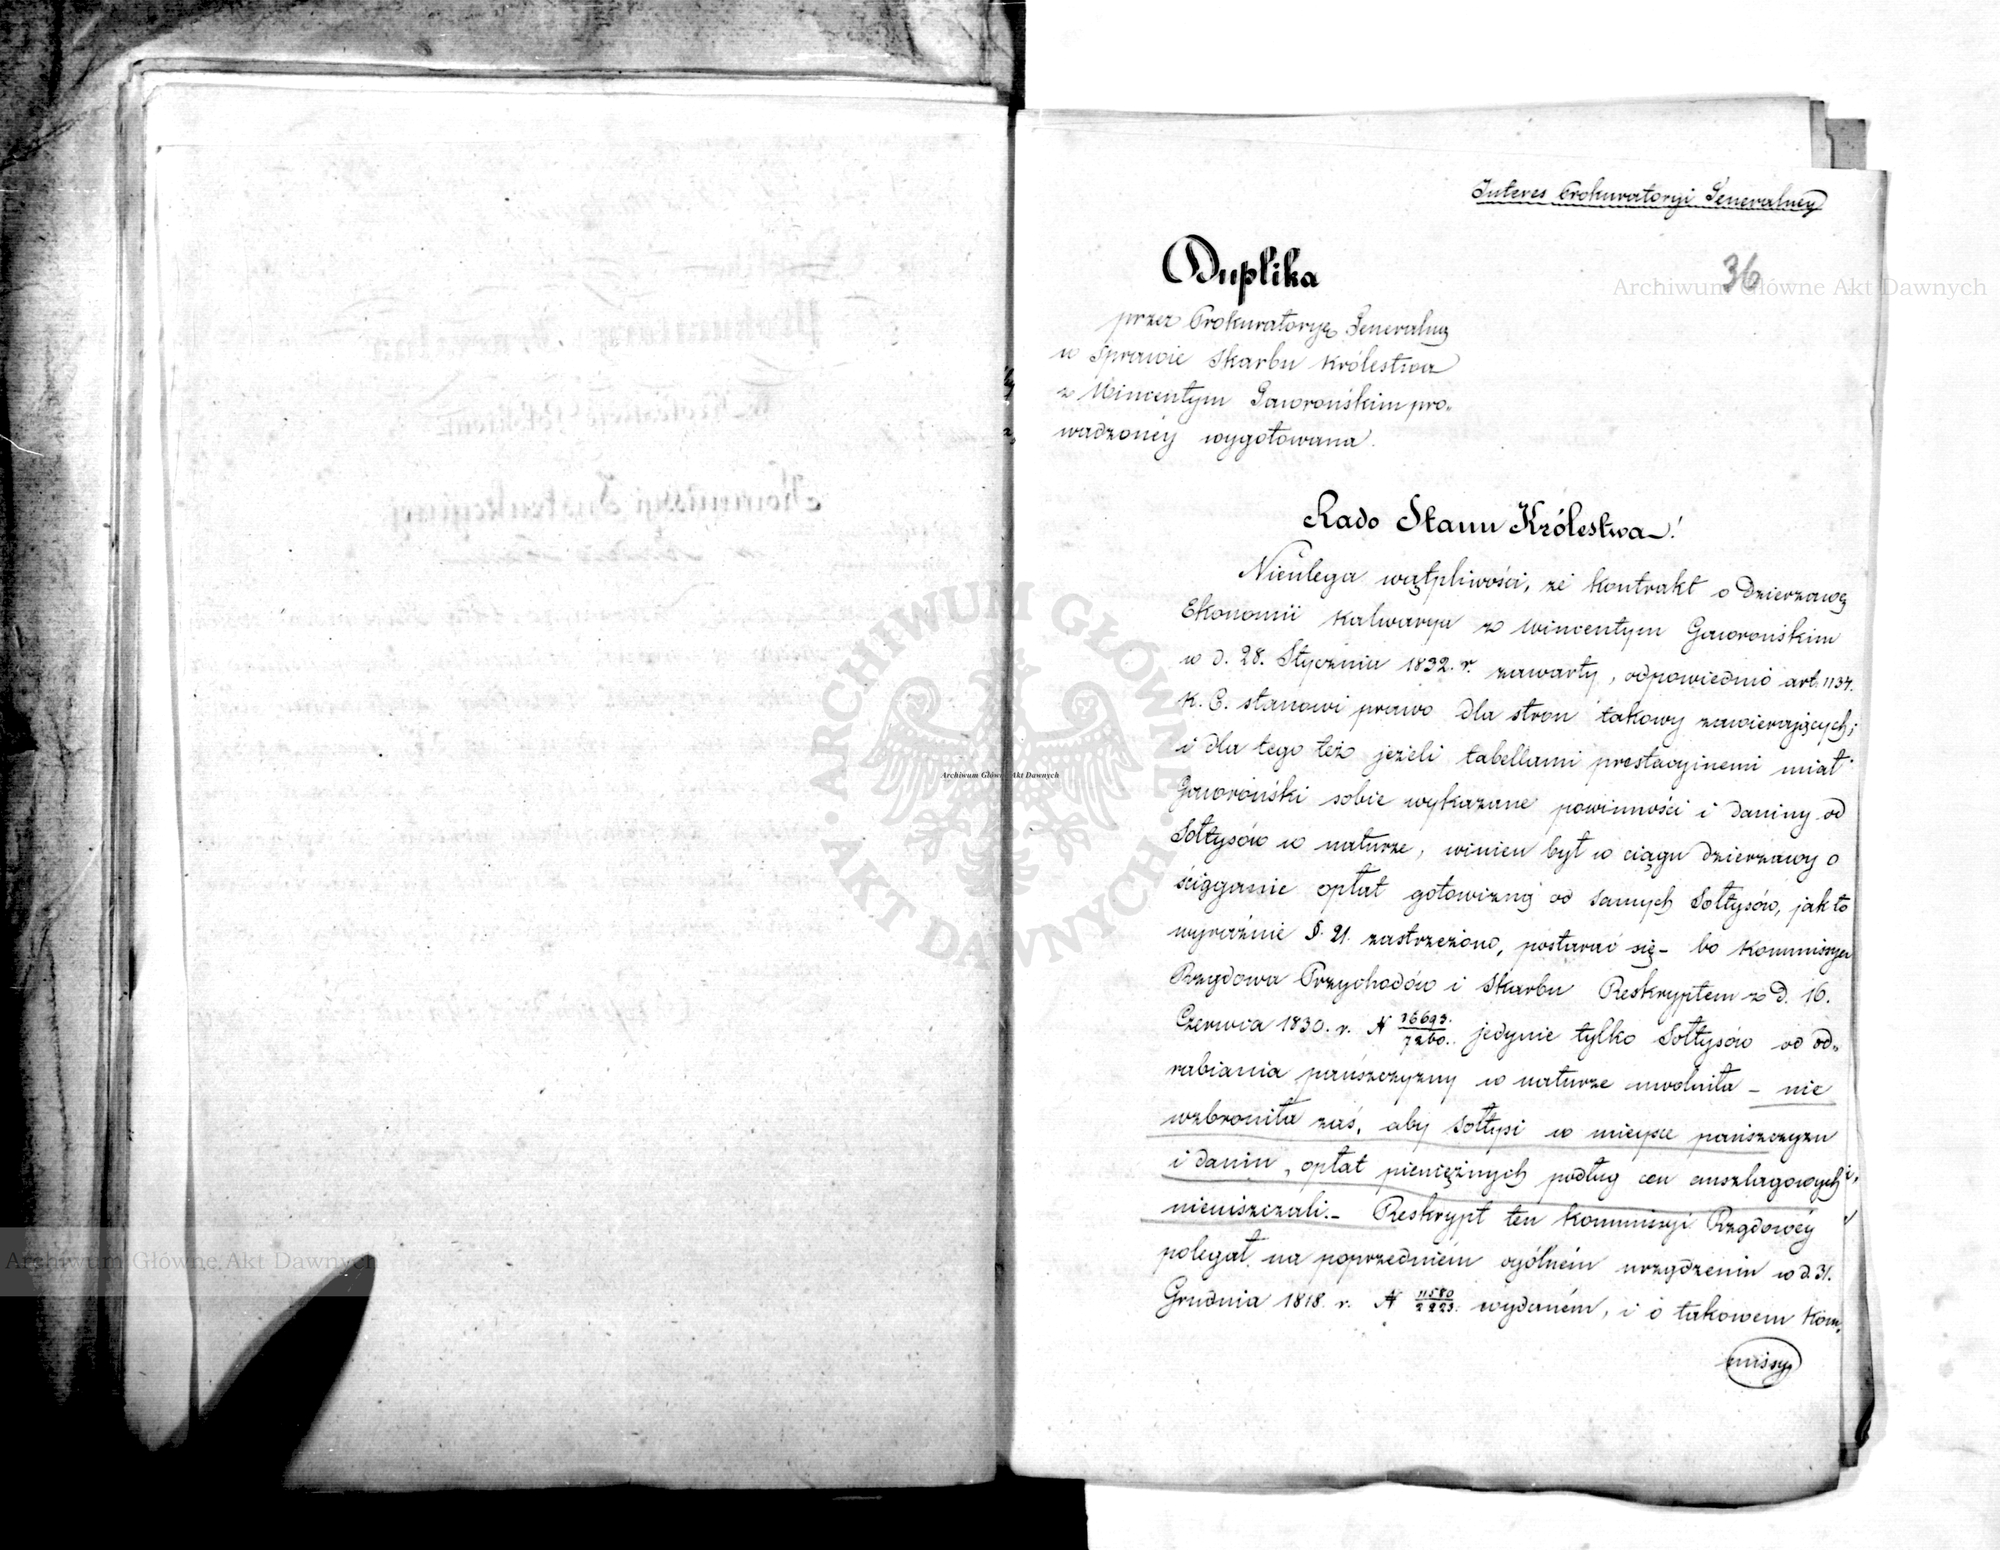 Interes Prokuratoryi Generalney
36
Duplika
przez Prokuratoryę Generalną
w Sprawie Skarbu Królestwa
z Wincentym Gaworońskim pro-
wadzoney wygotowana.
Rado Stanu Królestwa!
Nieulega wątpliwości, że kontrakt o Dzierzawę
Ekonomii Kalwarya z Wincentym Gaworońskim
w d. 28. Stycznia 1832. r. zawarty, odpowiednio art. 1134.
K. C. stanowi prawo dla stron takowy zawierających;
i dla tego też jeżeli tabellami prestacyinemi miał
Gaworoński sobie wykazane powinności i daniny od
Sołtysów w naturze, winien był w ciągu dzierzawy o
ściąganie opłat gotowizną od samych Sołtysów, jak to
wyraźnie §. 21. zastrzeżono, postarać się - bo Kommissya
Rządowa Przychodów i Skarbu Reskryptem z d. 16.
Czerwca 1830. r. N 76693./7260. jedynie tylko Sołtysów od od-
rabiania pańszczyzny w naturze uwolniła - nie
wzbroniła zaś, aby Sołtysi w mieysce pańszczyzn
i danin, opłat pieniężnych podług cen anszlagowych
nieuiszczali. - Reskrypt ten Kommissyi Rządowéy
polegał na poprzedniém ogólném urządzeniu w d. 31.
Grudnia 1818. r. N 11580/2223. wydaném, i o takowem Kom-
missya
Archiwum Główne Akt Dawnych
Archiwum Główne Akt Dawnych
Archiwum Główne Akt Dawnych
ARCHIWUM GŁÓWNE AKT DAWNYCH